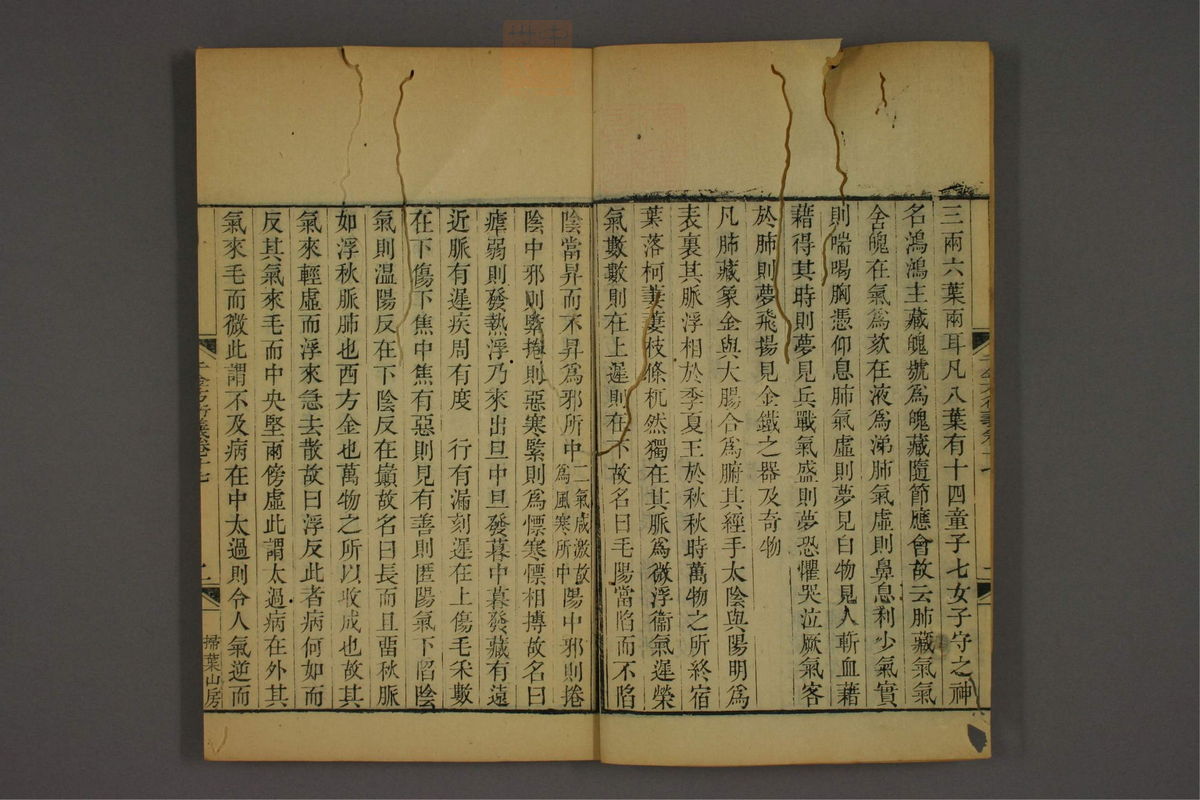 三兩六葉兩耳凡八葉有十四童子七女子守之神
名鴻鴻主藏魄號為魄藏隨節應會故云肺藏氣氣
舍魄在氣為欬在液為涕肺氣虛則鼻息利少氣實
則喘喝胸憑仰息肺氣虛則夢見白物見人斬血藉
藉得其時則夢見兵戰氣盛則夢恐懼哭泣厥氣客
於肺則夢飛揚見金鐵之器及奇物
凡肺藏象金與大腸合為腑其經手太陰與陽明為
表裏其脈浮相於季夏王於秋秋時萬物之所終宿
葉落柯萋萋枝條杌然獨在其脈為微浮衞氣遲榮
氣數數則在上遲則在下故名曰毛陽當陷而不陷
陰當昇而不昇為邪所中二氣感激故為風寒所中陽中邪則捲
陰中邪則緊捲則惡寒緊則為慄寒慄相摶故名曰
瘧弱則發熱浮乃來出旦中旦發暮中暮發藏有遠
近脈有遲疾周有度 行有漏刻遲在上傷毛采數
在下傷下焦中焦有惡則見有善則匿陽氣下陷陰
氣則温陽反在下陰反在巔故名曰長而且畱秋脈
如浮秋脈肺也西方金也萬物之所以收成也故其
氣來輕虛而浮來急去散故曰浮反此者病何如而
反其氣來毛而中央堅兩傍虛此謂太過病在外其
氣來毛而微此謂不及病在中太過則令人氣逆而
千金方衍義卷十七
掃葉山房